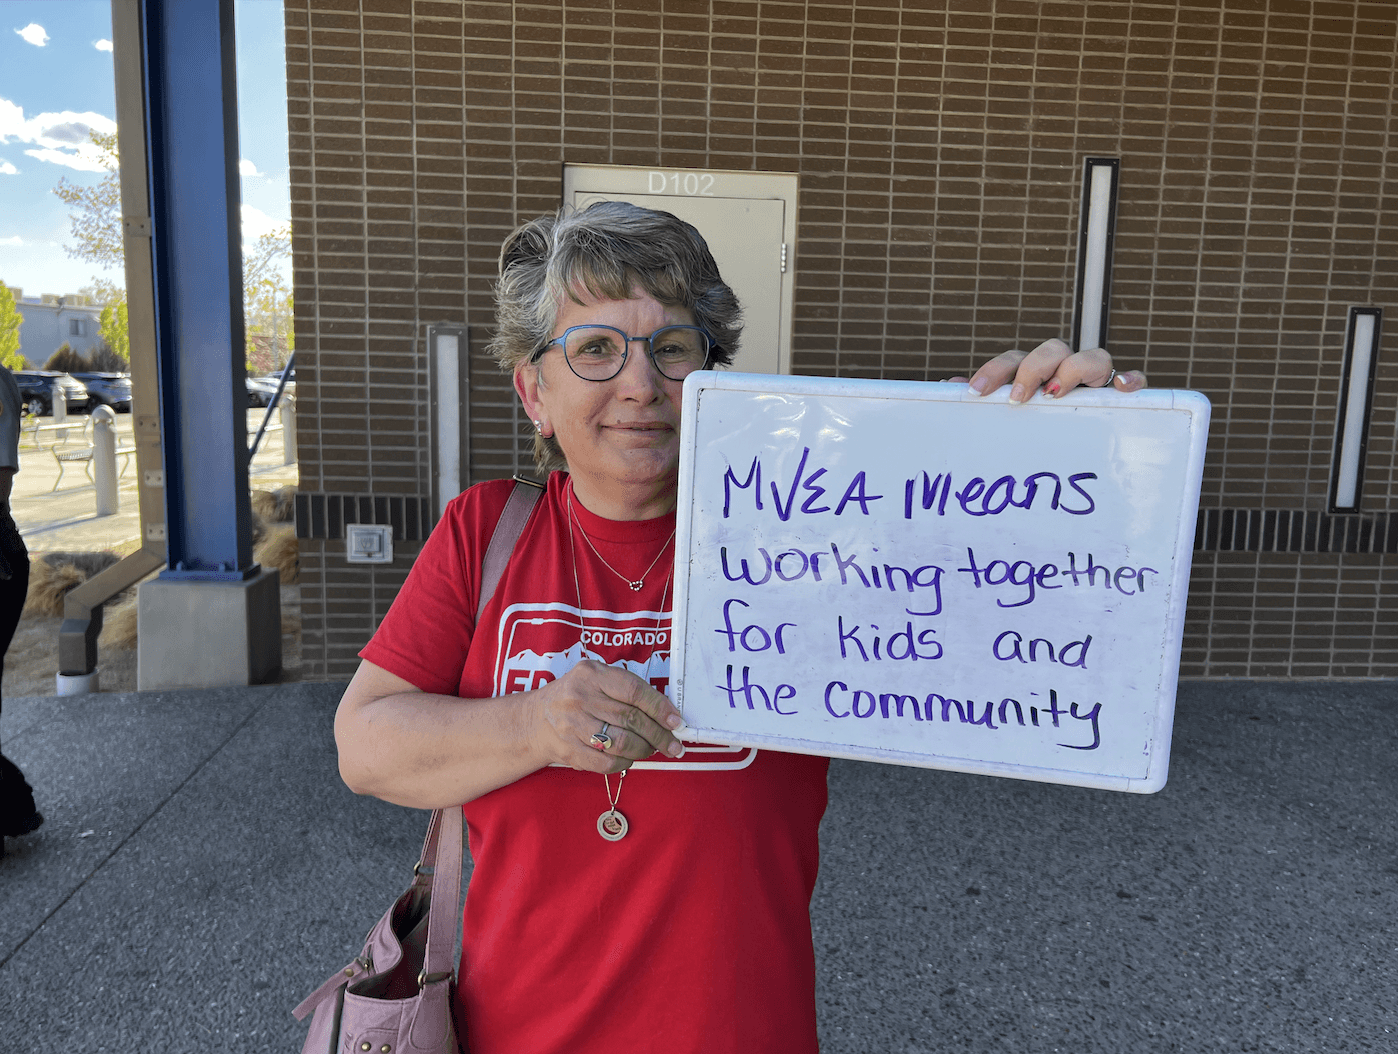 D102
MVEA Means
working together
for kids and
the community
COLORADO